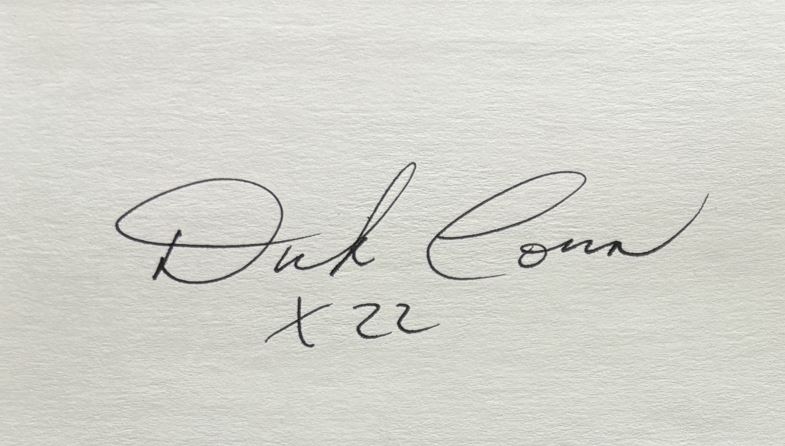 Dick Conn
X 22